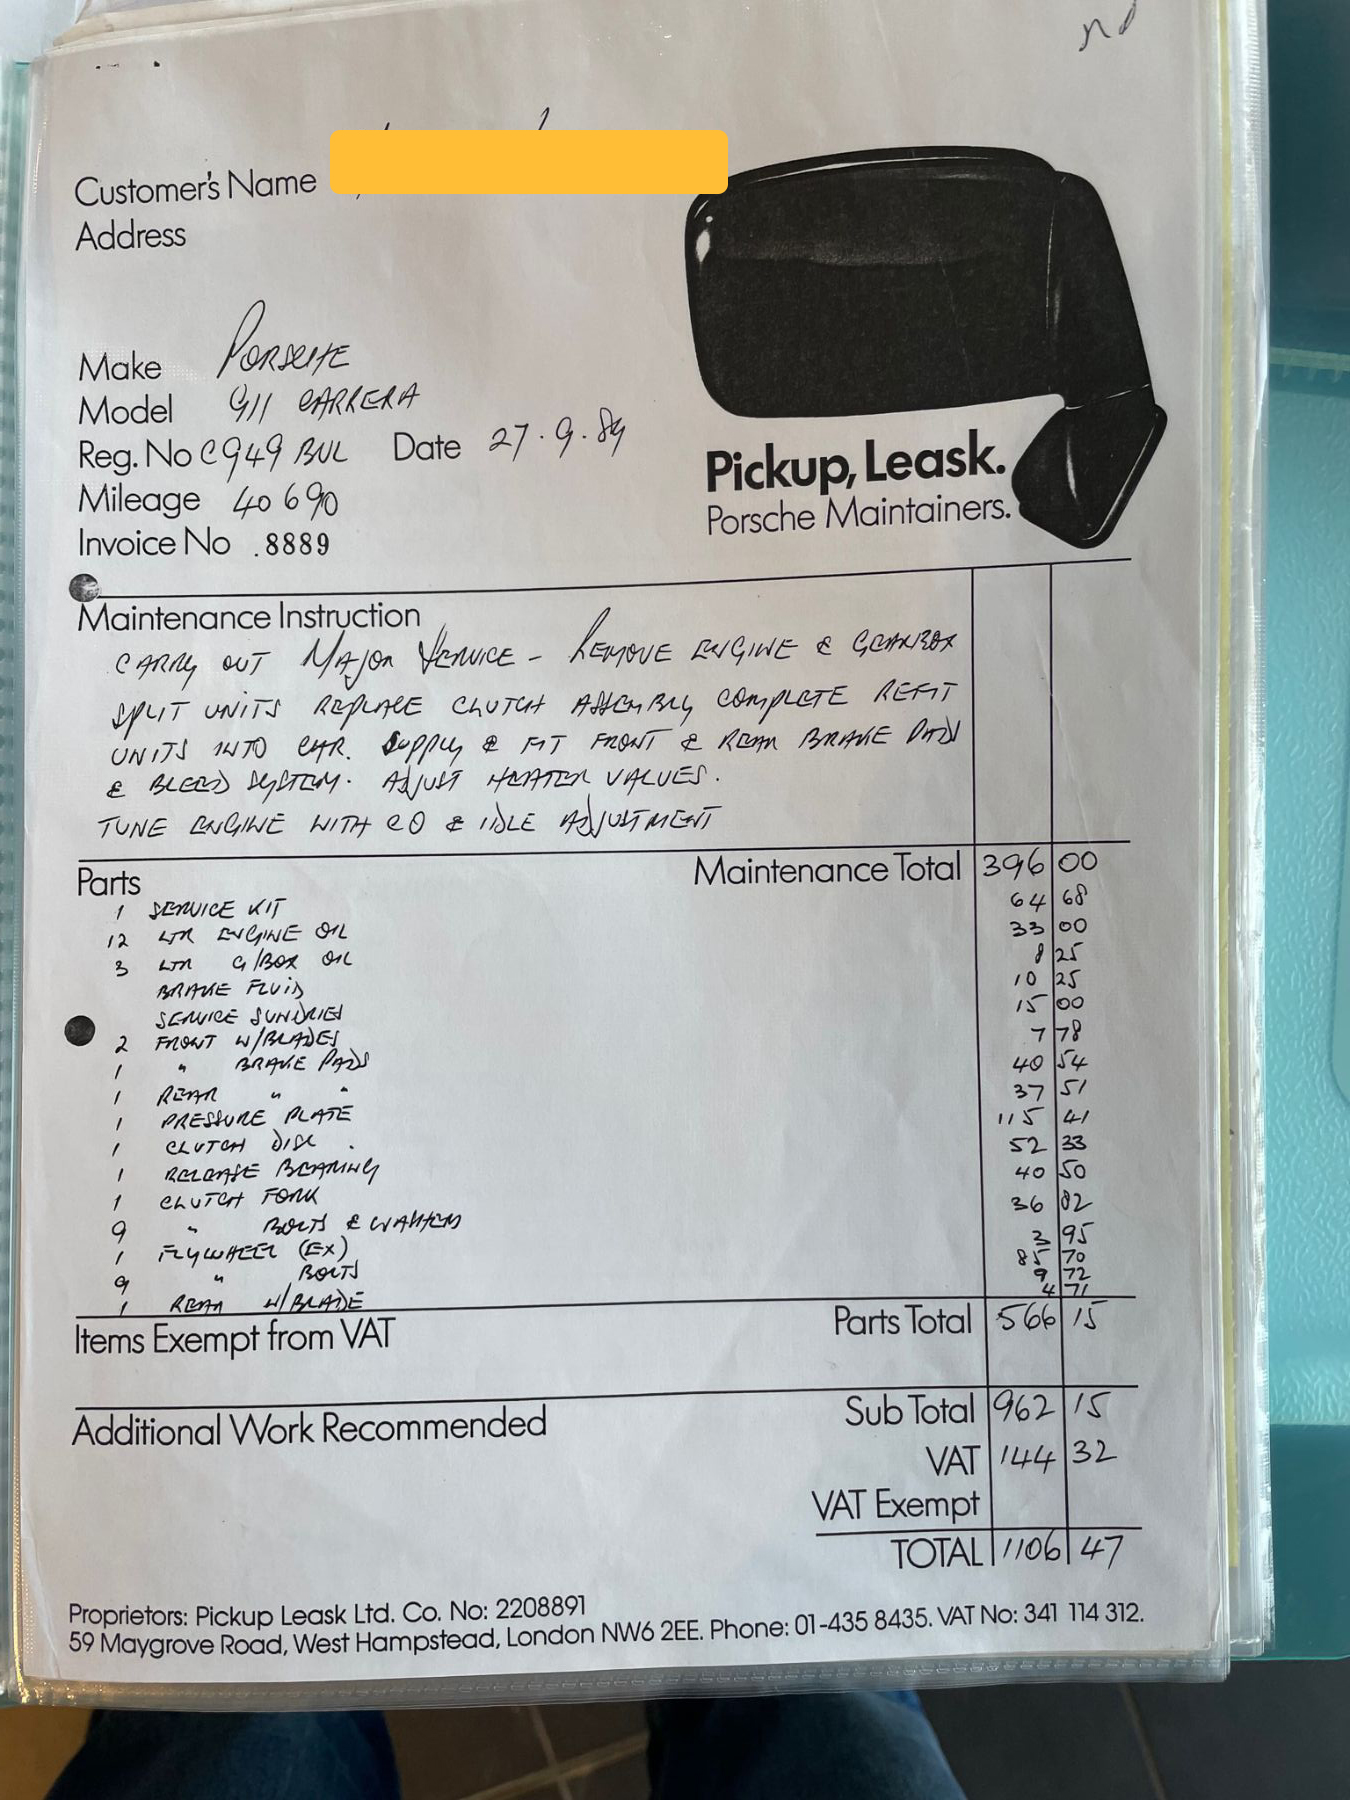 Customer's Name
Address
Make PORSCHE
Model 911 CARRERA
Reg. No C949 BUL Date 27.9.89
Mileage 40690
Invoice No .8889
Pickup, Leask.
Porsche Maintainers.
Maintenance Instruction
CARRY OUT MAJOR SERVICE - REMOVE ENGINE & GEARBOX
SPLIT UNITS REPLACE CLUTCH ASSEMBLY COMPLETE REFIT
UNITS INTO CAR. SUPPLY & FIT FRONT & REAR BRAKE PADS
& BLEED SYSTEM. ADJUST HEATER VALVES.
TUNE ENGINE WITH CO & IDLE ADJUSTMENT
Maintenance Total 396 00
Parts
1 SERVICE KIT 64 68
12 LTR ENGINE OIL 33 00
3 LTR G/BOX OIL 8 25
BRAKE FLUID 10 25
SERVICE SUNDRIES 15 00
2 FRONT W/BLADES 7 78
1 " BRAKE PADS 40 54
1 REAR " " 37 51
1 PRESSURE PLATE 115 41
1 CLUTCH DISC . 52 33
1 RELEASE BEARING 40 50
1 CLUTCH FORK 36 82
9 " BOLTS & WASHERS 3 95
1 FLYWHEEL (EX) 85 70
9 " BOLTS 9 72
1 REAR W/BLADE 4 71
Items Exempt from VAT Parts Total 566 15
Additional Work Recommended Sub Total 962 15
VAT 144 32
VAT Exempt
TOTAL 1106 47
Proprietors: Pickup Leask Ltd. Co. No: 2208891
59 Maygrove Road, West Hampstead, London NW6 2EE. Phone: 01-435 8435. VAT No: 341 114 312.